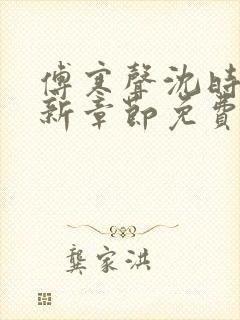 傅寒聲沈時
新章節免費
龔家洪